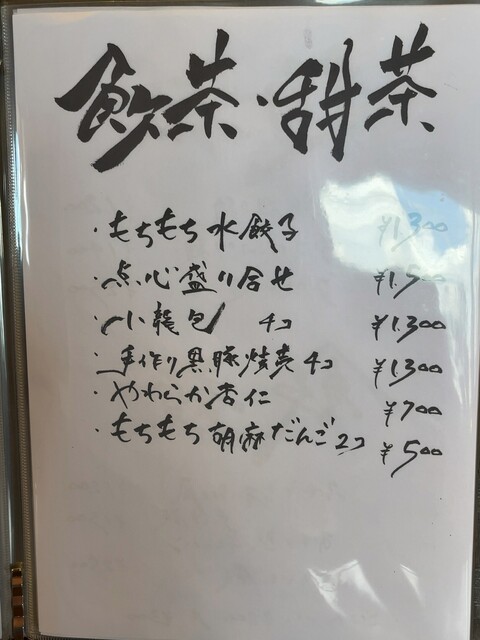 飲茶・甜茶
・もちもち水餃子 ¥1.300
・点心盛り合せ ¥1.500
・小籠包 4コ ¥1.300
・手作り黒豚焼売 4コ ¥1300
・やわらか杏仁 ¥700
・もちもち胡麻だんご 2コ ¥500